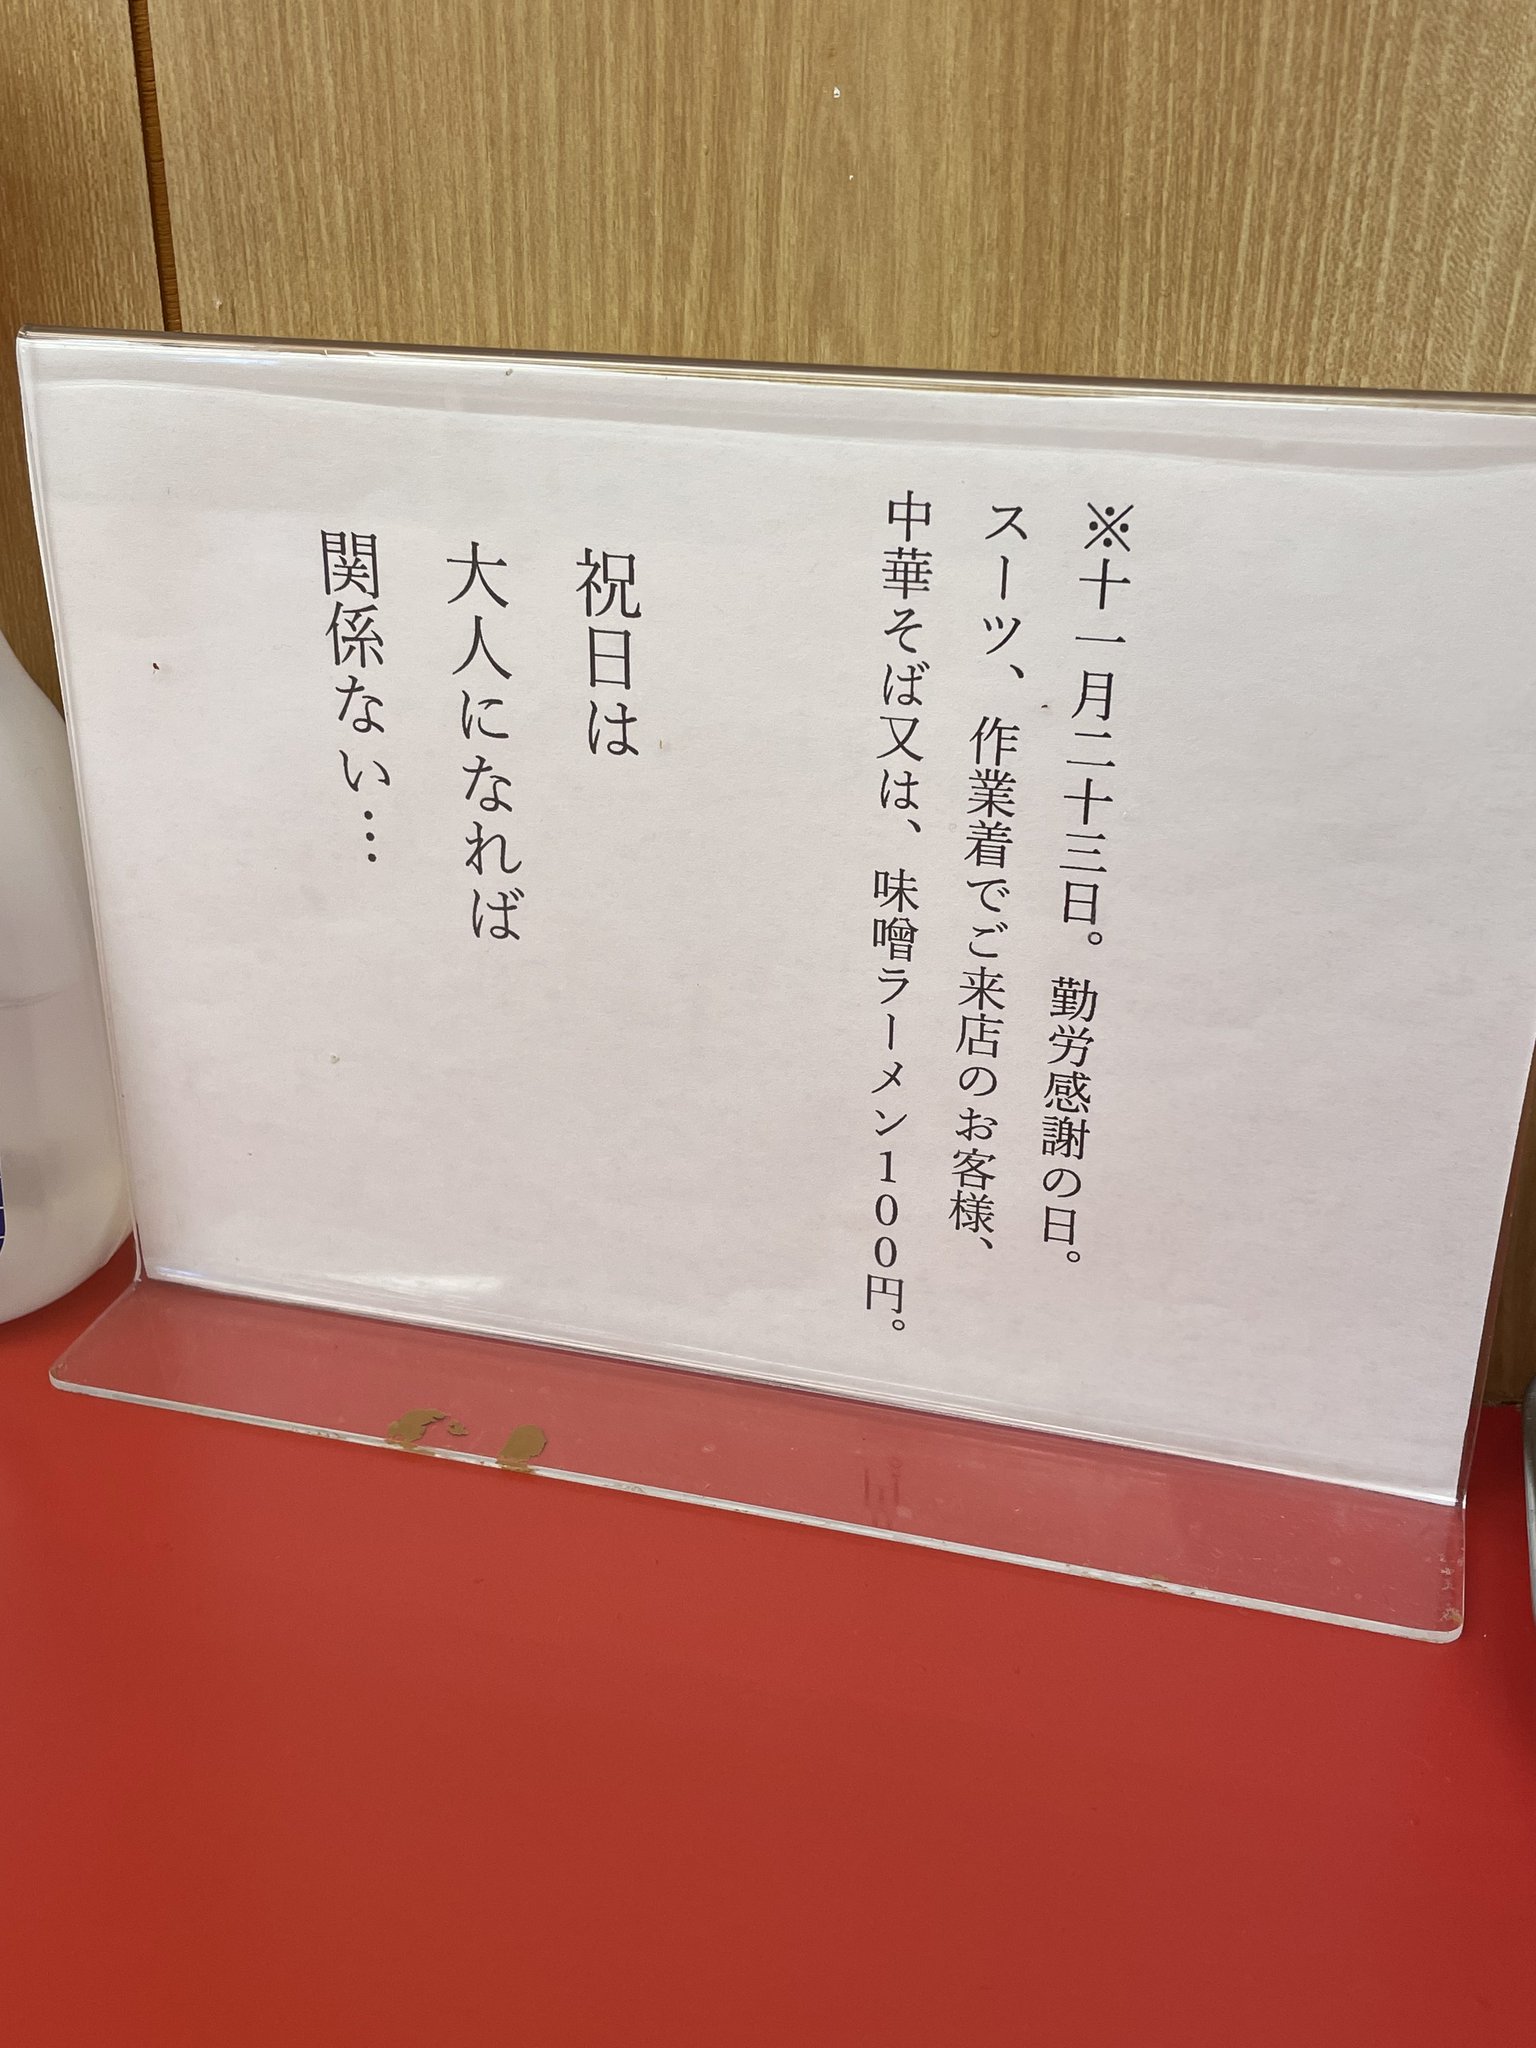 ※十一月二十三日。勤労感謝の日。
スーツ、作業着でご来店のお客様、
中華そば又は、味噌ラーメン100円。
祝日は
大人になれば
関係ない…